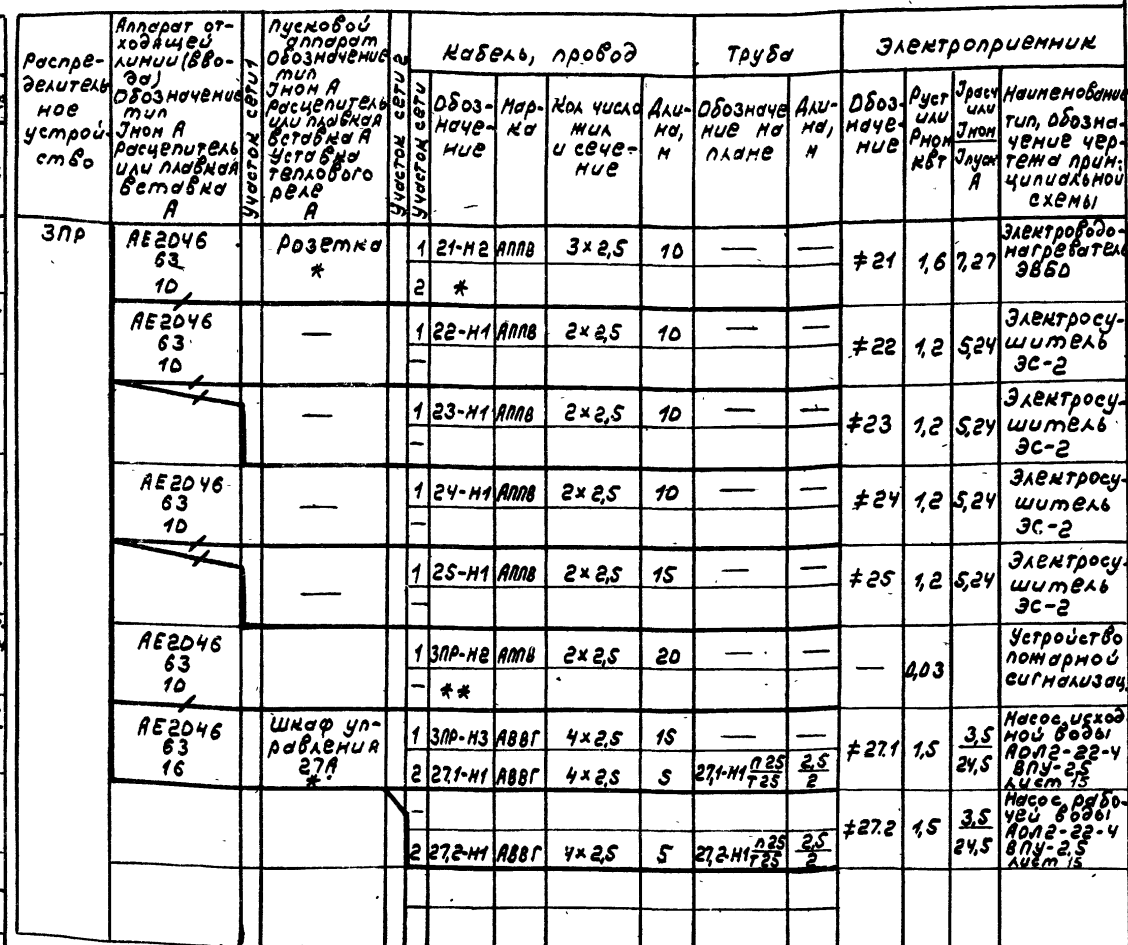 Распре-
делитель
ное
устрой-
ство
Аппарат от-
ходящей
линии (вво-
да)
Обозначение
тип
Iном А
Расцепитель
или плавкая
вставка
А
Участок сети 1
Пусковой
аппарат
Обозначение
тип
Iном А
Расцепитель
или плавкая
вставка А
Уставка
теплового
реле
А
Участок сети 2
Участок сети
Кабель, провод
Обоз-
наче-
ние
Мар-
ка
Кол число
жил
и сече-
ние
Дли-
на,
м
Труба
Обозначе
ние на
плане
Дли-
на,
м
Электроприемник
Обоз-
наче-
ние
Руст
или
Рном
кВт
Iрасч
или
Iном
Iпуск
А
Наименование
тип, обозна-
чение чер-
тежа прин-
ципиальной
схемы
3ПР
АЕ2046
63
10
Розетка
*
1 21-Н2 АППВ 3×2,5 10 — —
2 *
≠21 1,6 7,27
Электроводо-
нагреватель
ЭВБО
АЕ2046
63
10
—
1 22-Н1 АППВ 2×2,5 10 — —
—
≠22 1,2 5,24
Электросу-
шитель
ЭС-2
—
1 23-Н1 АППВ 2×2,5 10 — —
—
≠23 1,2 5,24
Электросу-
шитель
ЭС-2
АЕ2046
63
10
—
1 24-Н1 АППВ 2×2,5 10 — —
—
≠24 1,2 5,24
Электросу-
шитель
ЭС-2
—
1 25-Н1 АППВ 2×2,5 15 — —
—
≠25 1,2 5,24
Электросу-
шитель
ЭС-2
АЕ2046
63
10
1 3ПР-Н2 АППВ 2×2,5 20 — —
— **
— 0,03
Устройство
пожарной
сигнализац.
АЕ2046
63
16
Шкаф уп-
равления
27А
*
1 3ПР-Н3 АВВГ 4×2,5 15 — —
2 27.1-Н1 АВВГ 4×2,5 5 27.1-Н1 П25/Т25 2,5/2
≠27.1 1,5 3,5/24,5
Насос исход
ной воды
АОЛ2-22-4
ВПУ-2,5
лист 15
—
2 27.2-Н1 АВВГ 4×2,5 5 27.2-Н1 П25/Т25 2,5/2
≠27.2 1,5 3,5/24,5
Насос рабо-
чей воды
АОЛ2-22-4
ВПУ-2,5
лист 15